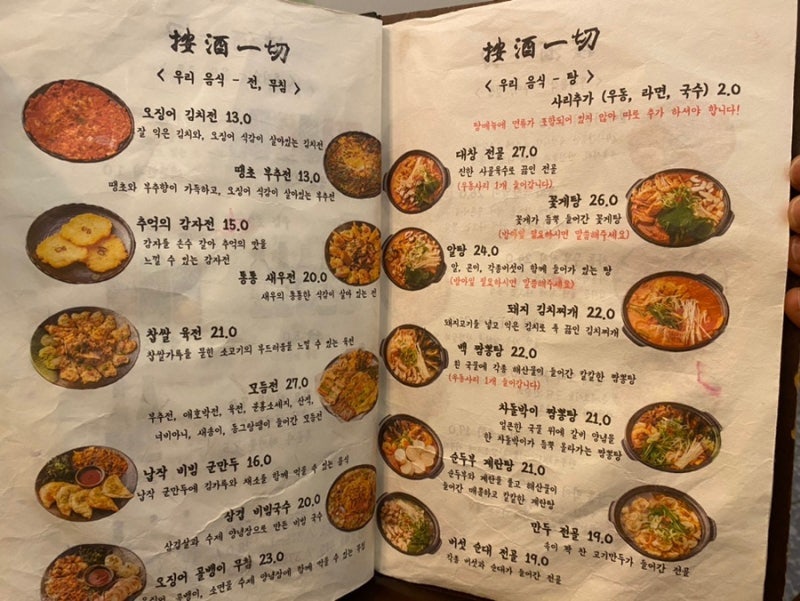 按酒一切
< 우리 음식 - 전, 무침 >
오징어 김치전 13.0
잘 익은 김치와, 오징어 식감이 살아있는 김치전
땡초 부추전 13.0
땡초와 부추향이 가득하고, 오징어 식감이 살아있는 부추전
추억의 감자전 15.0
감자를 손수 갈아 추억의 맛을
느낄 수 있는 감자전
통통 새우전 20.0
새우의 통통한 식감이 살아 있는 전
찹쌀 육전 21.0
찹쌀가루를 묻힌 소고기의 부드러움을 느낄 수 있는 육전
모듬전 27.0
부추전, 애호박전, 육전, 분홍소세지, 산적,
너비아니, 새송이, 동그랑땡이 들어간 모듬전
납작 비빔 군만두 16.0
납작 군만두에 김가루와 채소를 함께 먹을 수 있는 음식
삼겹 비빔국수 20.0
삼겹살과 수제 양념장으로 만든 비빔 국수
오징어 골뱅이 무침 23.0
오징어, 골뱅이, 소면을 수제 양념장에 함께 먹을 수 있는 무침
按酒一切
< 우리 음식 - 탕 >
사리추가 (우동, 라면, 국수) 2.0
탕메뉴에 면류가 포함되어 있지 않아 따로 추가 하셔야 합니다!
대창 전골 27.0
진한 사골육수로 끓인 전골
(우동사리 1개 들어갑니다)
꽃게탕 26.0
꽃게가 듬뿍 들어간 꽃게탕
(밥이일 필요하시면 말씀해주세요)
알탕 24.0
알, 곤이, 각종버섯이 함께 들어가 있는 탕
(밥이일 필요하시면 말씀해주세요)
돼지 김치찌개 22.0
돼지고기를 넣고 익은 김치로 푹 끓인 김치찌개
백 짬뽕탕 22.0
흰 국물에 각종 해산물이 들어간 칼칼한 짬뽕탕
(우동사리 1개 들어갑니다)
차돌박이 짬뽕탕 21.0
얼큰한 국물 위에 갈비 양념을
한 차돌박이가 듬뿍 올라가는 짬뽕탕
순두부 계란탕 21.0
순두부와 계란을 풀고 해산물이
들어간 매콤하고 칼칼한 계란탕
만두 전골 19.0
속이 꽉 찬 고기만두가 들어간 전골
버섯 순대 전골 19.0
각종 버섯과 순대가 들어간 전골